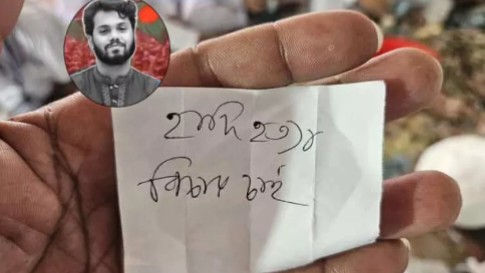 হাদি হত্যার
বিচার চাই